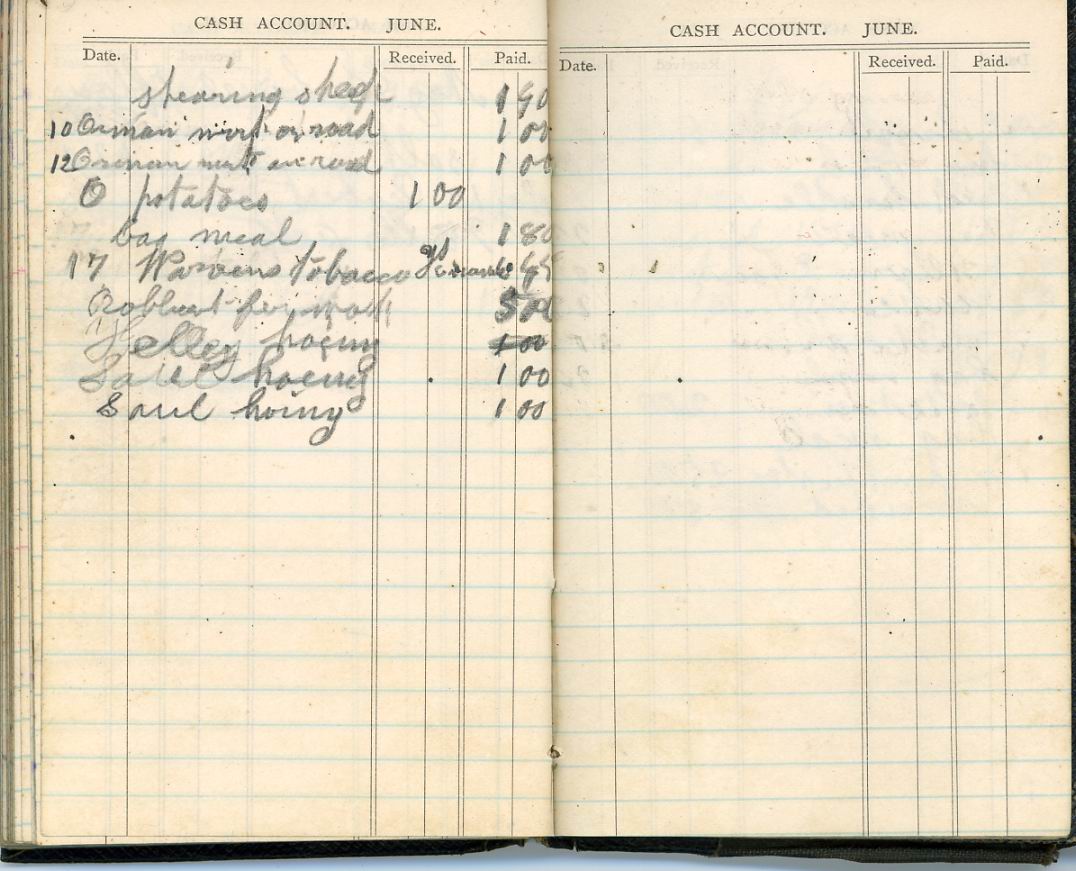 CASH ACCOUNT. JUNE.
Date. Received. Paid.
shearing sheep 1 90
10 Orman on road 1 00
12 Orman on road 1 00
O potatoes 1 00
bag meal 1 80
17 tobacco
for 5 00
Kelley hoeing 1 00
Saul hoeing 1 00
Saul hoing 1 00
CASH ACCOUNT. JUNE.
Date. Received. Paid.